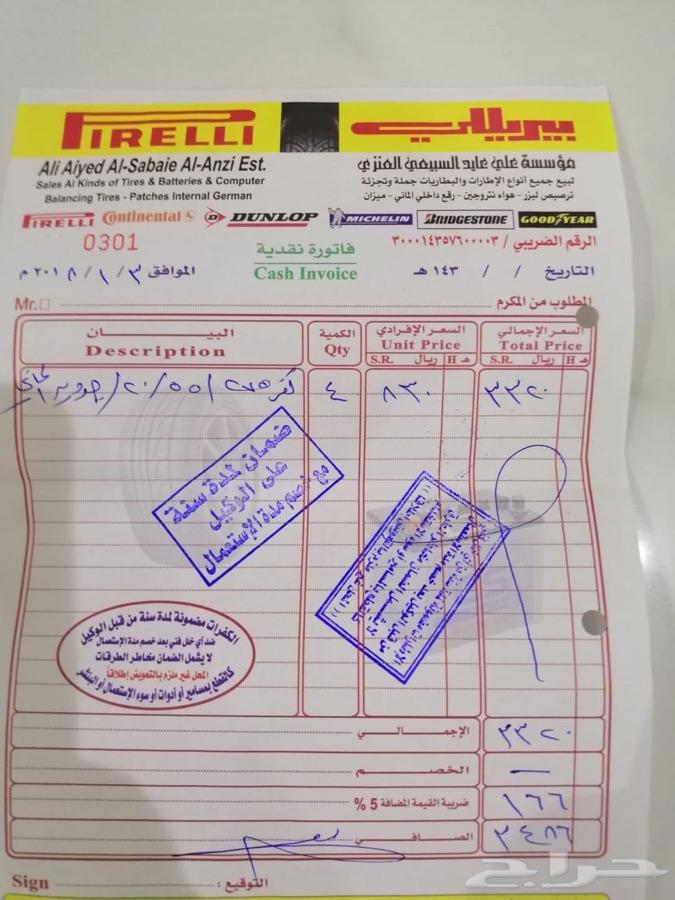 PIRELLI بيريللي
Ali Aiyed Al-Sabaie Al-Anzi Est. مؤسسة علي عايد السبيعي العنزي
Sales Al Kinds of Tires & Batteries & Computer
Balancing Tires - Patches Internal German
لبيع جميع أنواع الإطارات والبطاريات جملة وتجزئة
ترصيص ليزر - هواء نتروجين - رقع داخلي ألماني - ميزان
PIRELLI Continental DUNLOP MICHELIN BRIDGESTONE GOODYEAR
0301
فاتورة نقدية
Cash Invoice
الرقم الضريبي / ٣٠٠٠١٤٣٥٧٦٠٠٠٠٣
التاريخ / / ١٤٣ هـ
الموافق ٣ / ١ / ٢٠١٨ م
Mr. المطلوب من المكرم
البيــــان الكمية السعر الإفرادي السعر الإجمالي
Description Qty Unit Price Total Price
S.R. ريال H هـ S.R. ريال H هـ
كفر ٢٧٥ / ٥٥ / ٢٠ / ٤ ٨٣٠ ٣٣٢٠
ضمان لمدة سنة
على الوكيل
مع خصم مدة الإستعمال
الكفرات مضمونة لمدة سنة من قبل الوكيل
ضد أي خلل فني بعد خصم مدة الإستعمال
لا يشمل الضمان مخاطر الطرقات
المحل غير ملزم بالتعويض إطلاقاً
كالقطع بمسامير أو أدوات أو سوء الإستعمال أو البنشر
الإجمـــالـــي ٣٣٢٠
الخصـــم —
ضريبة القيمة المضافة 5 % ١٦٦
الصـــافـــي ٣٤٨٦
Sign التوقيع :
حراج